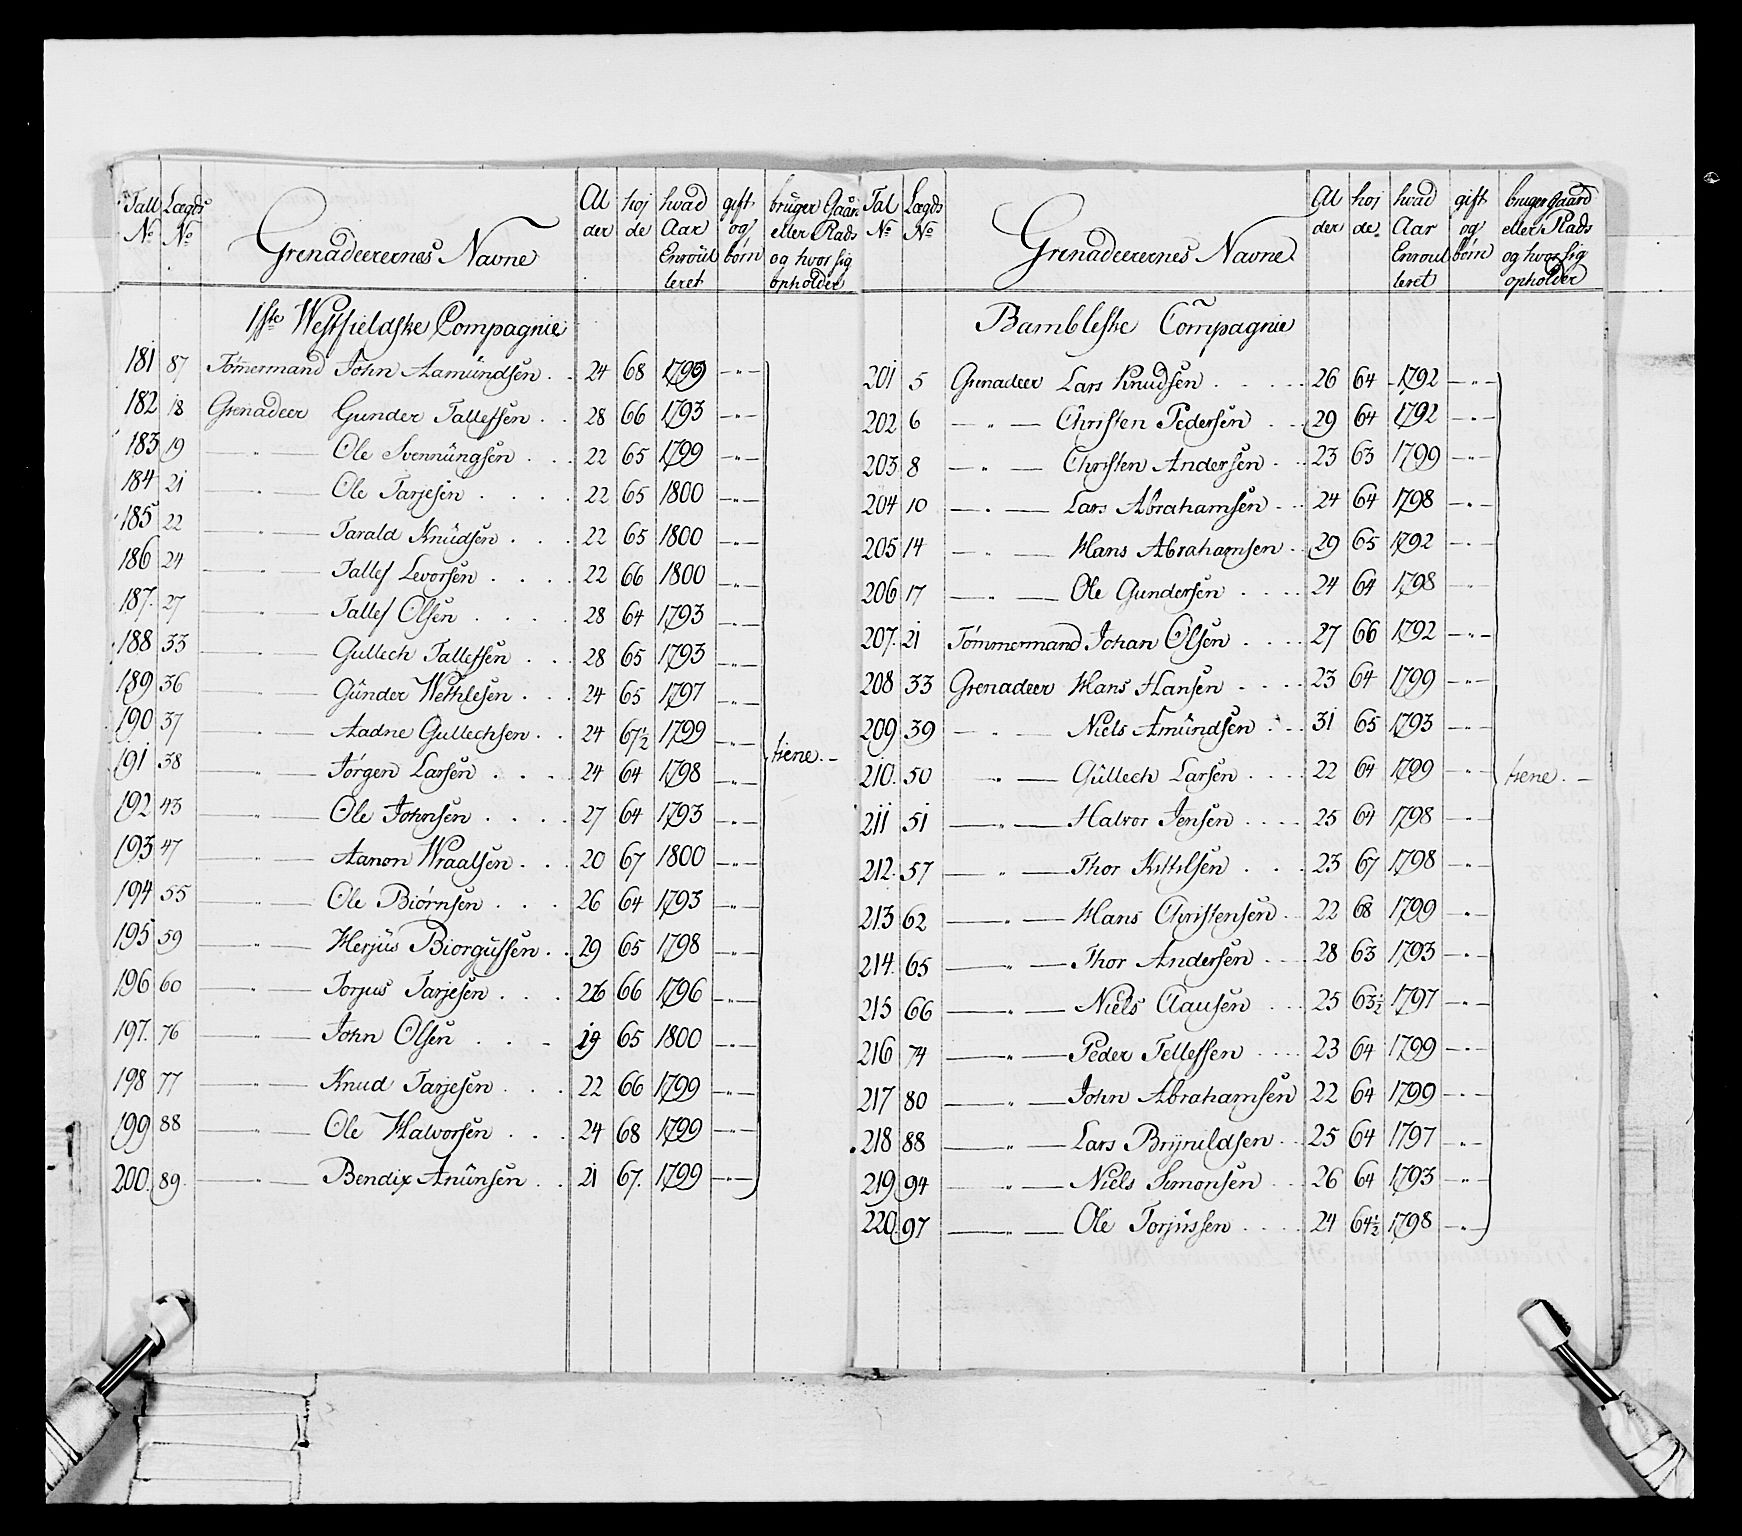 Tall Lægds Grenadeerernes Navne Al hoj hvad gift bruger Gaard
No No der de Aar og eller Plads
Enroul børn og hvor sig
leret opholder
1ste Westfieldske Compagnie
181 87 Tømmermand John Aamundsen . . 24 68 1799 —"—
182 18 Grenadeer Gunder Tallefsen . . 28 66 1793 —"—
183 19 —"— Ole Svennüngsen . . . 22 65 1799 —"—
184 21 —"— Ole Tarjesen . . . . 22 65 1800 —"—
185 22 —"— Tarald Knüdsen . . . 22 65 1800 —"—
186 24 —"— Tallef Levorsen . . . . 22 66 1800 —"—
187. 27 —"— Tallef Olsen . . . . 28 64 1793 —"—
188 33 —"— Gullech Tallefsen . . . 28 65 1793 —"—
189 36 —"— Günder Wethlesen . . . 24 65 1797 —"—
190 37 —"— Aadne Gullechsen . . 24 67½ 1799 —"—
191 38 —"— Jørgen Larsen . . . . 24 64 1798 —"— tiene. —
192 43 —"— Ole Johnsen . . . . 27 64 1793 —"—
193 47 —"— Aanon Wraalsen . . . 20 67 1800 —"—
194 55 —"— Ole Biørnsen . . . 26 64 1793 —"—
195 59 —"— Herjüs Biorgufsen . . 29 65 1798 —"—
196 60 —"— Torjus Tarjesen . . . 26 66 1796 —"—
197. 76 —"— John Olsen . . . 19 65 1800 —"—
198 77 —"— Knud Tarjesen . . . 22 66 1799 —"—
199 88 —"— Ole Halvorsen . . . 24 68 1799 —"—
200. 89. —"— Bendix Anünsen . . 21 67. 1799 —"—
Tal Lægds Grenadeerernes Navne Al hoj hvad gift bruger Gaard
No No der de. Aar og eller Plads
Enroul børn og hvor sig
leret opholder
Bambleske Compagnie
201 5 Grenadeer Lars Knudsen . . . . 26 64 1792 —"—
202 6 —"— Christen Pedersen . . 29 64 1792 —"—
203 8 —"— Christen Andersen . . 23 63 1799 —"—
204 10 —"— Lars Abrahamsen . . 24 64 1798 —"—
205 14 —"— Hans Abrahamsen . . 29 65 1792 —"—
206 17 —"— Ole Gundersen . . . . 24 64 1798 —"—
207. 21 Tømmermand Johan Olsen . . . . 27 66 1792 —"—
208 33 Grenadeer Hans Hansen . . . . 23 64 1799 —"—
209 39 —"— Niels Amündsen . . . 31 65 1793 —"—
210. 50 —"— Güllech Larsen . . . . 22 64 1799 —"— tiene. —
211 51 —"— Halvor Jensen . . . . 25 64 1798 —"—
212. 57 —"— Thor Kittilsen . . . 23 67 1798 —"—
213 62 —"— Hans Christensen . . 22 68 1799 —"—
214. 65 —"— Thor Andersen . . . 28 63 1793 —"—
215 66 —"— Niels Clausen . . . 25 63½ 1797 —"—
216 74 —"— Peder Tellefsen . . . . 23 64 1799 —"—
217 80 —"— John Abrahamsen 22 64 1799 —"—
218 88 —"— Lars Brÿnildsen . . 25 64 1797 —"—
219 94 —"— Niels Simonsen . . . 26 64 1793 —"—
220. 97 —"— Ole Torjüssen . . . . 24 64½ 1798 —"—